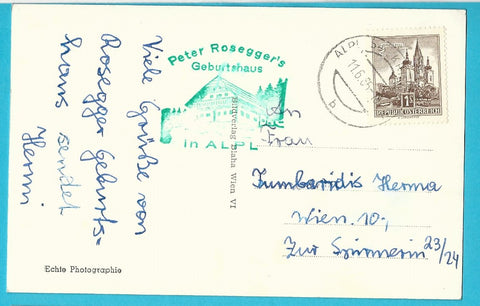 Viele Grüße von
Rosegger Geburts-
haus sendet
Hermi
Peter Rosegger's
Geburtshaus
in ALPL
ALPL
11.6.
b
1S
REPUBLIK ÖSTERREICH
An
Frau
Zumbaridis Herma
Wien 10.,
Zur Spinnerin 23/24
Bildverlag Blaha Wien VI
Echte Photographie